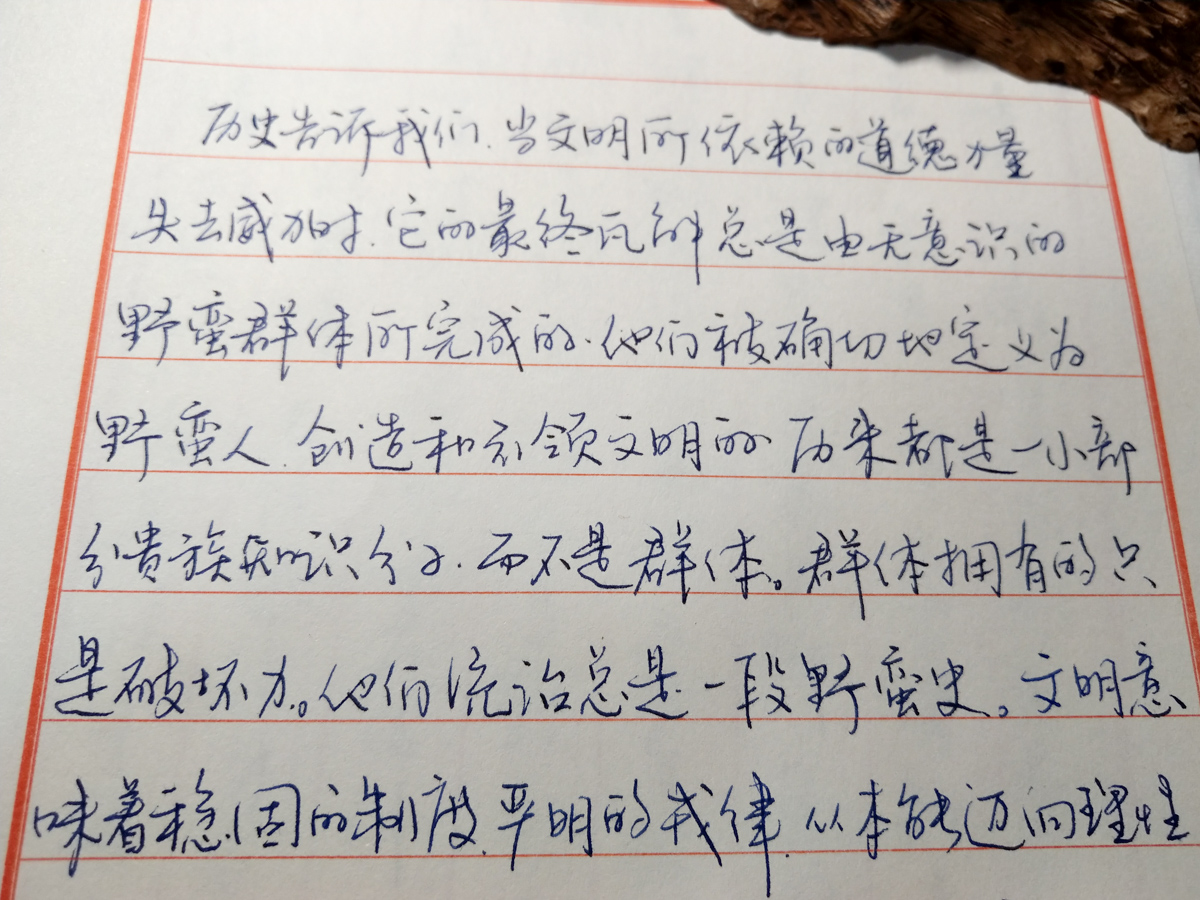 历史告诉我们.当文明所依赖的道德力量
失去威力时.它的最终瓦解总是由无意识的
野蛮群体所完成的.他们被确切地定义为
野蛮人.创造和引领文明的历来都是一小部
分贵族知识分子.而不是群体。群体拥有的只
是破坏力。他们统治总是一段野蛮史。文明意
味着稳固的制度.严明的戒律.从本能迈向理性